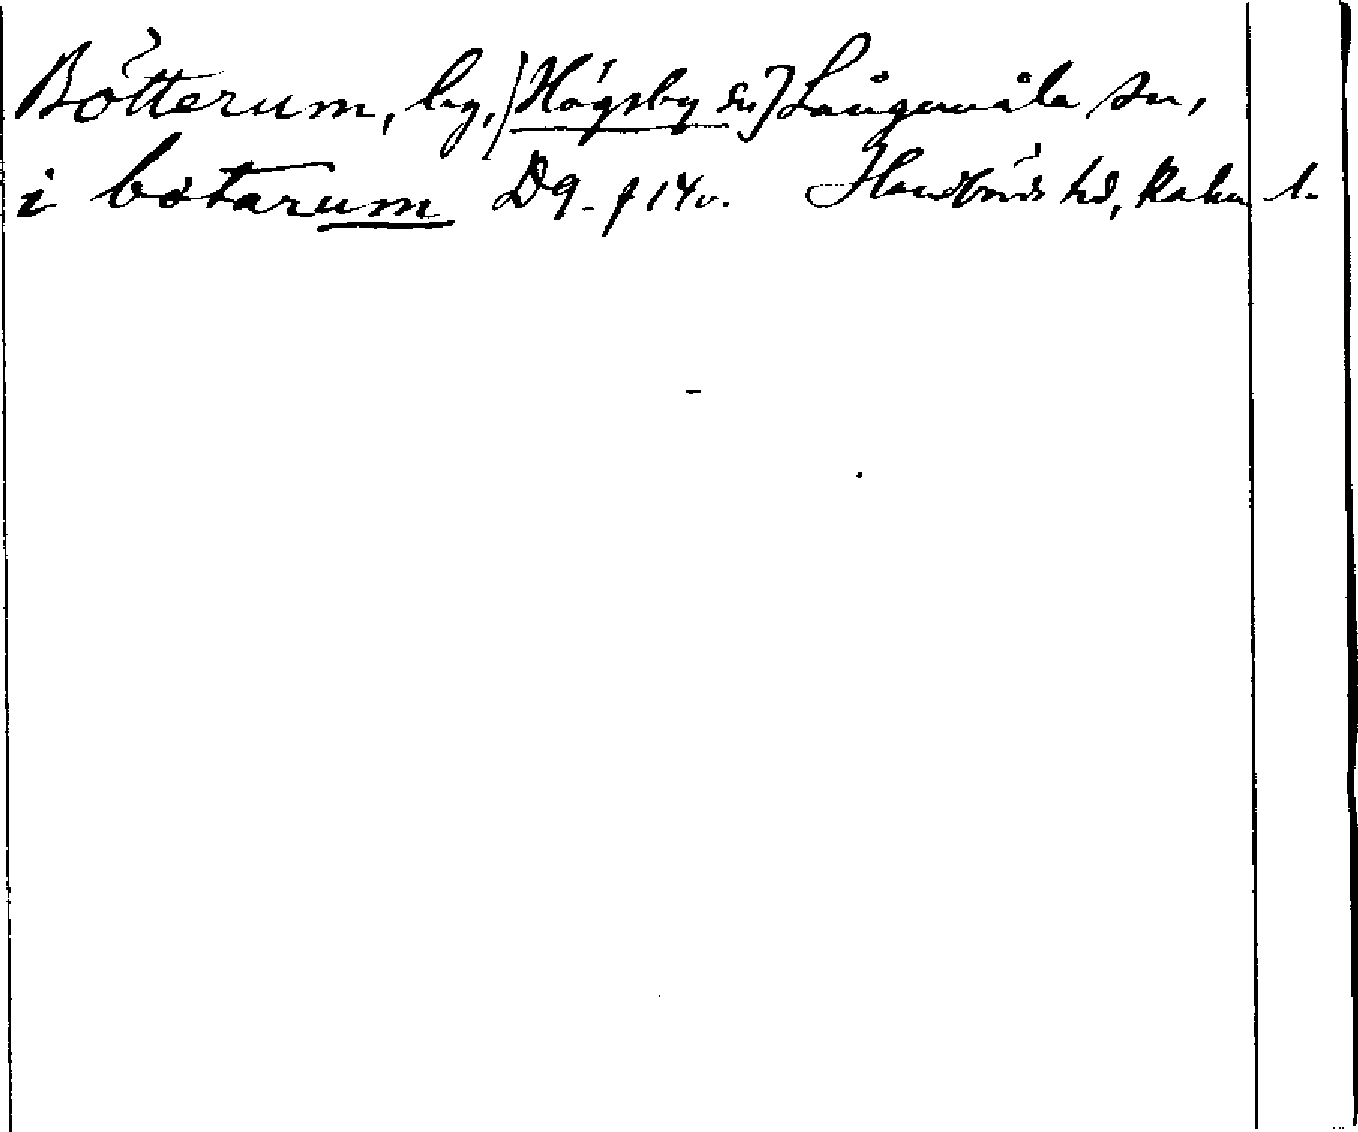 Bötterum, by, (Högsby sn) Långemåla sn,
i botarum D9. f 14v. Handbörds hd, Kalm l.